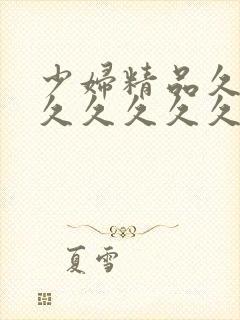 少妇精品久
久久久久久
夏雪